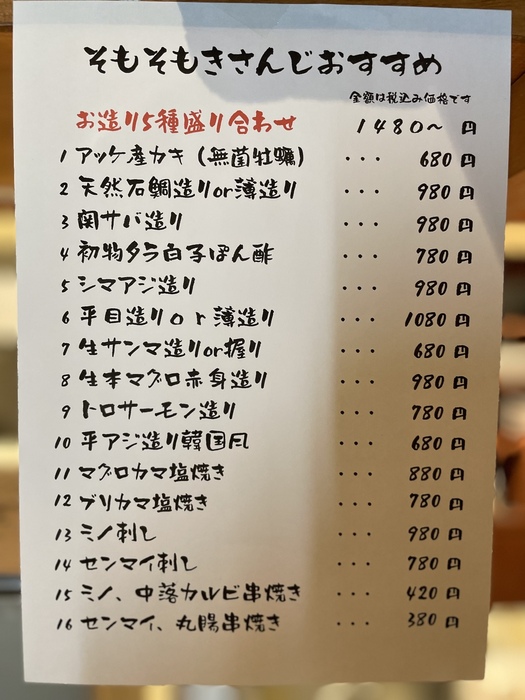 そもそもきさんじおすすめ
金額は税込み価格です
お造り5種盛り合わせ 1480~ 円
1 アッケ産カキ (無菌牡蠣) ・・・ 680 円
2 天然石鯛造りor薄造り 980 円
3 関サバ造り ・・・ 980 円
4 初物タラ白子ぽん酢 ・・・ 780 円
5 シマアジ造り ・・・ 980 円
6 平目造りor薄造り ・・・ 1080 円
7 生サンマ造りor握り ・・・ 680 円
8 生本マグロ赤身造り ・・・ 980 円
9 トロサーモン造り ・・・ 780 円
10 平アジ造り韓国風 ・・・ 680 円
11 マグロカマ塩焼き ・・・ 880 円
12 ブリカマ塩焼き ・・・ 780 円
13 ミノ刺し ・・・ 980 円
14 センマイ刺し ・・・ 780 円
15 ミノ、中落カルビ串焼き ・・・ 420 円
16 センマイ、丸腸串焼き ・・・ 380 円